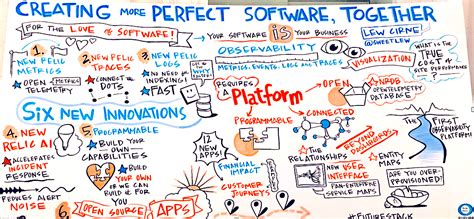 CREATING MORE PERFECT SOFTWARE, TOGETHER
FOR THE LOVE OF SOFTWARE!
YOUR SOFTWARE IS YOUR BUSINESS
LEW CIRNE
@SWEETLEW
OBSERVABILITY
METRICS, EVENTS, LOGS AND TRACES
VISUALIZATION
WHAT IS THE TRUE COST OF SITE PERFORMANCE
1. NEW RELIC METRICS
OPEN METRICS
TELEMETRY
2. NEW RELIC TRACES
CONNECT THE DOTS
3. NEW RELIC LOGS
NO NEED FOR INDEXING!
FAST
WHY
REQUIRES
Platform
OPEN
NRDB
OPENTELEMETRY
DATABASE
PROGRAMMABLE
CONNECTED
SIX NEW INNOVATIONS
4. NEW RELIC AI
ACCELERATES INCIDENT RESPONSE
REDUCES ALERT NOISE
5. PROGRAMMABLE
BUILD YOUR OWN CAPABILITIES
BUILD YOUR OWN
OR WE CAN BUILD IT FOR YOU
OPEN SOURCE
APPS
12 NEW APPS!
FINANCIAL IMPACT
CUSTOMER JOURNEYS
THE RELATIONSHIPS
ENTITY MAPS
NEW USER INTERFACE
PAN-ENTERPRISE SERVICE MAPS
BEYOND DASHBOARDS
THE FUTURE IS AN OBSERVABILITY PLATFORM
ARE YOU OVER-PROVISIONED?
#FUTURESTACK